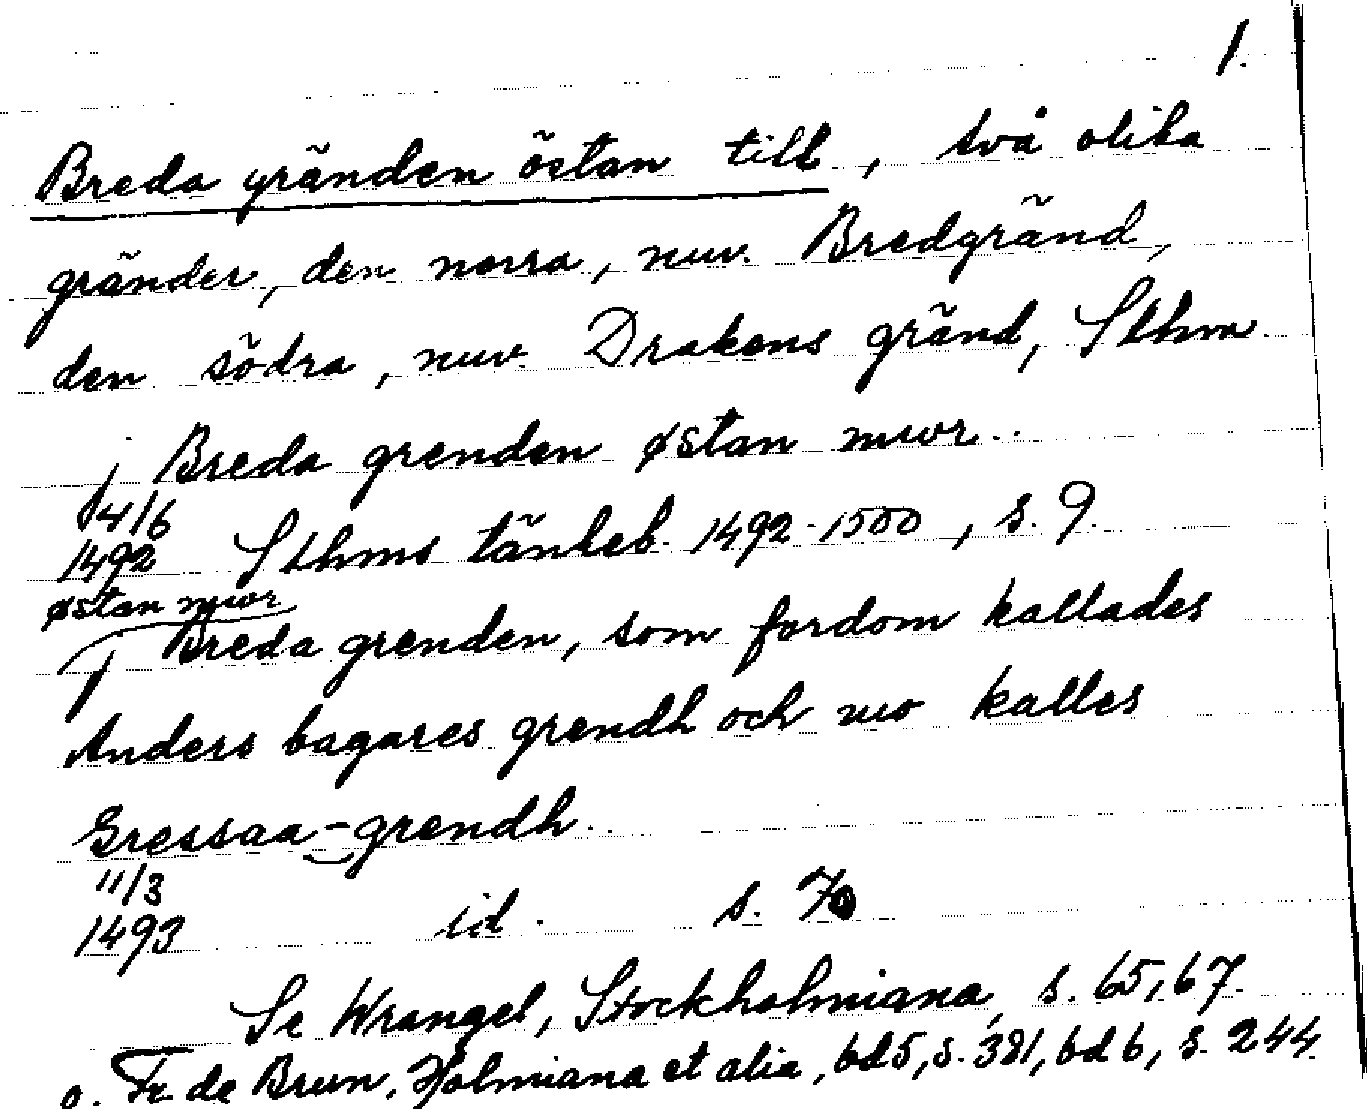 1.
Breda gränden östan till, två olika
gränder, den norra, nuv. Bredgränd,
den södra, nuv. Drakens gränd, Sthm
j Breda grenden østan mwr..
14/6
1492 Sthms tänkeb. 1492-1500, s. 9.
østan mwr
j Breda grenden, som fordom kallades
Anders bagares grendh och nw kalles
Gressaa-grendh.
11/3
1493 id. s. 70
Se Wrangel, Stockholmiana, s. 65, 67.
o. Fr. de Brun, Holmiana et alia, bd 5, s. 381, bd 6, s. 244.